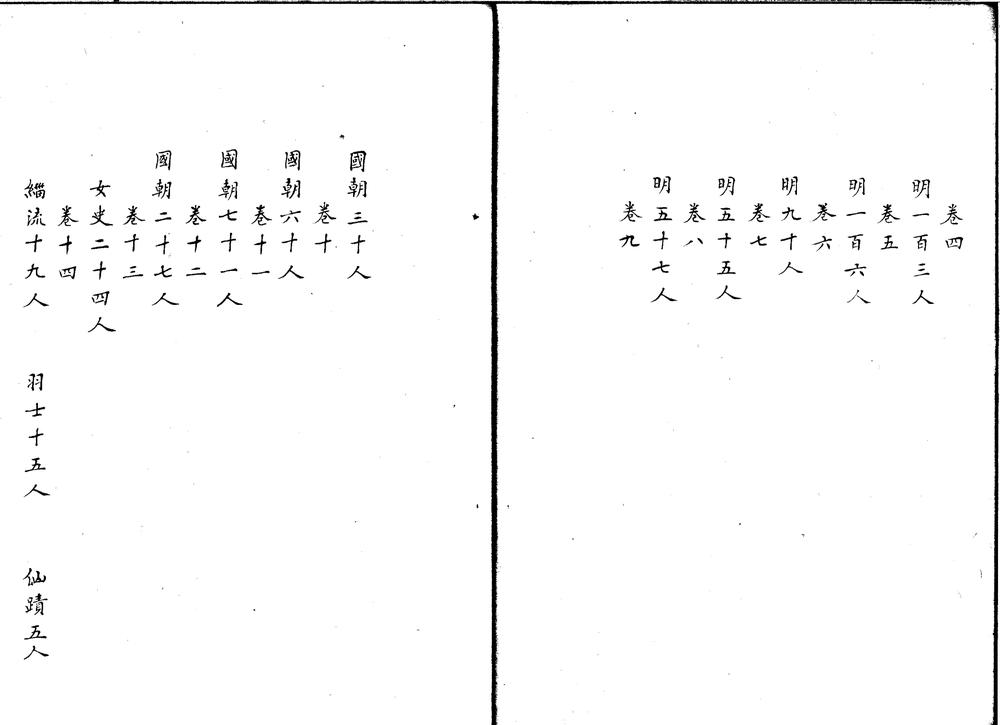 卷四
明一百三人
卷五
明一百六人
卷六
明九十人
卷七
明五十五人
卷八
明五十七人
卷九
國朝三十人
卷十
國朝六十人
卷十一
國朝七十一人
卷十二
國朝二十七人
卷十三
女史二十四人
卷十四
緇流十九人 羽士十五人 仙蹟五人